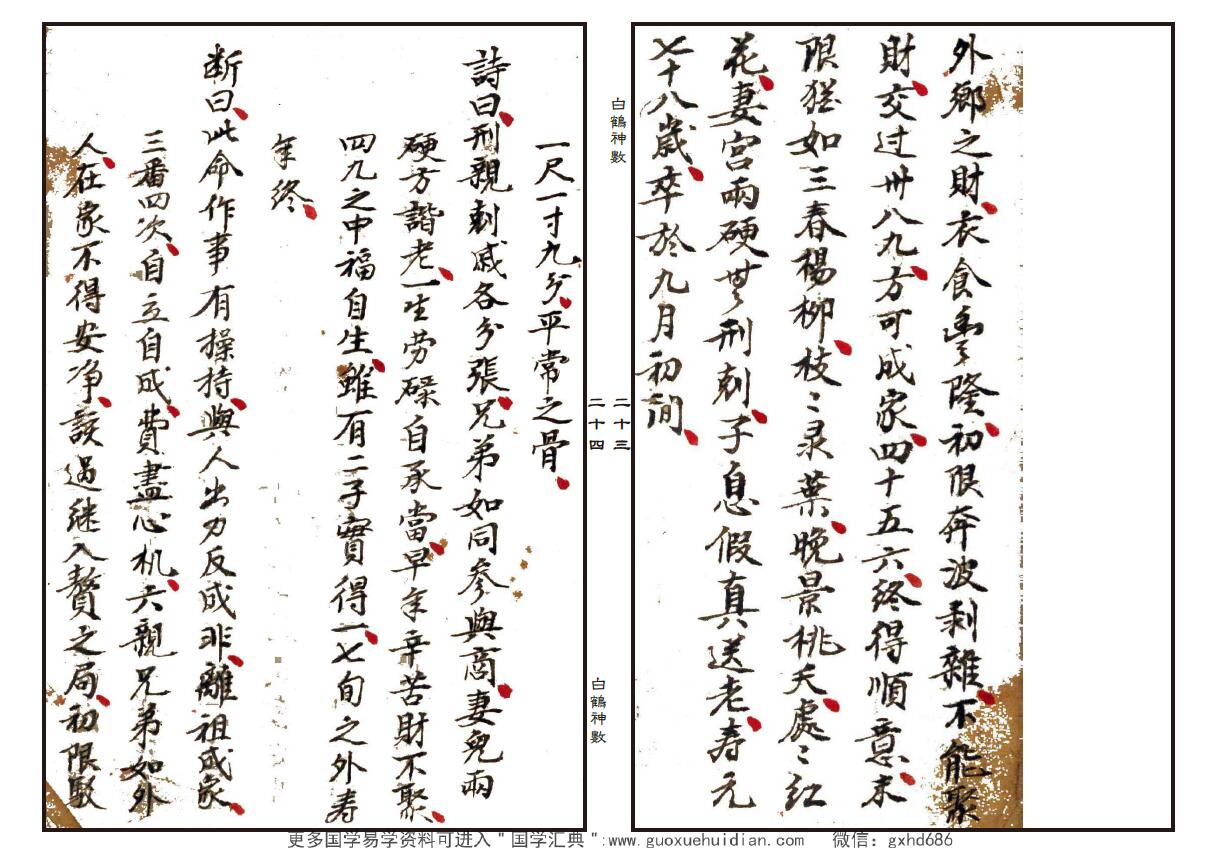 外鄉之財衣食豊隆初限奔波剥雜不能聚
財交过卅八九方可成家四十五六終得順意末
限猶如三春楊柳枝〻录葉晚景桃夭處〻红
花妻宫兩硬無刑刺子息假真送老寿元
七十八歲卒於九月初間
白鶴神數
二十三
二十四
白鶴神數
一尺一寸九分平常之骨
詩曰刑親刺戚各分張兄弟如同参與商妻兒兩
硬方諧老一生劳碌自承當早年辛苦財不聚
四九之中福自生雖有二子實得一七旬之外寿
年终
断曰此命作事有操持與人出力反成非離祖成家
三番四次自立自成費盡心机六親兄弟如外
人在家不得安净該過继入贅之局初限駁
更多国学易学资料可进入＂国学汇典＂:www.guoxuehuidian.com 微信：gxhd686